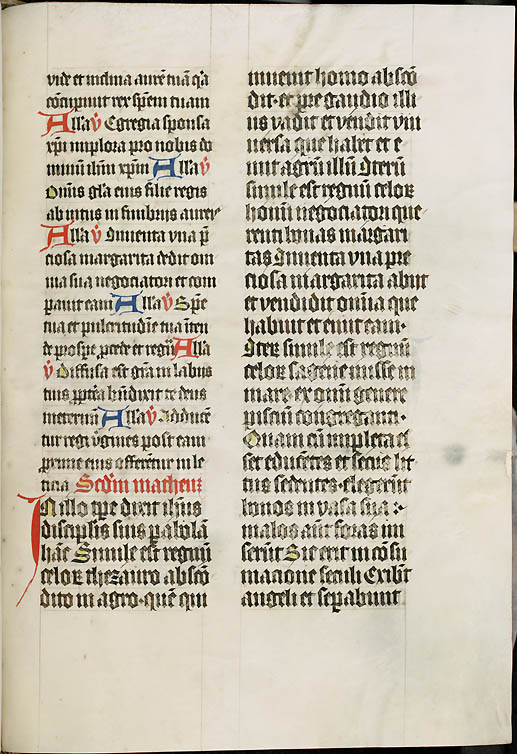 vide et inclina aurē tuā q̄a
cōcupiuit rex spēm tuam
Alla v̄ Egregia sponsa
xp̄i implora pro nobis do
minū ih̄m xp̄m Alla v̄
Omīs gl̄a eius filie regis
ab intus in fimbrijs aureis
Alla v̄ Inuenta vna p̄
ciosa margarita dedit om
nia sua negociator et com
parauit eam Alla v̄ Spē
tua et pulcritudīe tua īten
de prospe p̄cede et regn̄ Alla
v̄ Diffusa est gr̄a in labijs
tuis ꝓpt̄ea bn̄dixit te deus
in eternū Alla v̄ Adducē
tur regi v̄gines post eam
proxime eius offerent̄ in le
ticia Scdm̄ matheuꝫ
In illo tp̄e dixit ih̄us
discip̄lis suis parabolā
hāc Simile est regnū
celoꝝ thezauro abscō
dito in agro · quē qui
inuenit homo abscō
dit · et p̄re gaudio illi
us vadit et vendit vni
uersa que habet et e
mit agrū illū Iterū
simile est regnū celoꝝ
homī negociatori que
renti bonas margari
tas Inuenta vna pre
ciosa margarita abijt
et vendidit om̄ia que
habuit et emit eam ·
Iteꝝ simile est regnū
celoꝝ sagene misse in
mare · ex om̄i genere
pisciū congreganti ·
Quam cū impleta es
set educētes et secus lit
tus sedentes · elegerūt
bonos in vasa sua :·
malos aūt foras mi
serūt Sic erit in cōsu
macione seculi Exibūt
angeli et separabunt